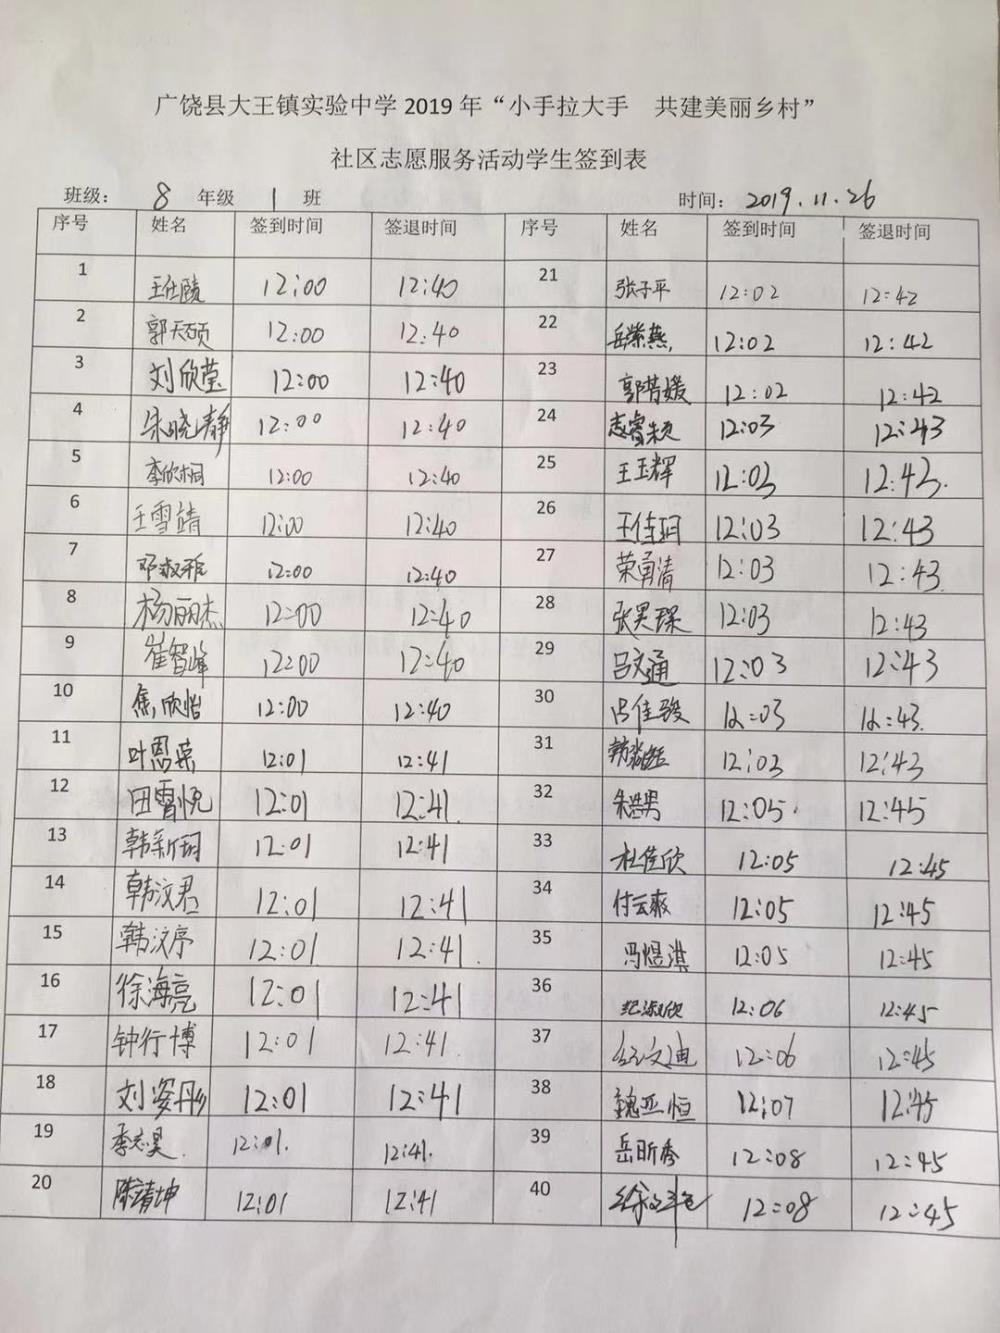 广饶县大王镇实验中学2019年“小手拉大手 共建美丽乡村”
社区志愿服务活动学生签到表
班级: 8 年级 1 班 时间: 2019.11.26
序号 姓名 签到时间 签退时间 序号 姓名 签到时间 签退时间
1 12:00 12:40 21 张子平 12:02 12:42
2 郭天硕 12:00 12:40 22 岳紫燕 12:02 12:42
3 刘欣莹 12:00 12:40 23 郭芳媛 12:02 12:42
4 朱晓静 12:00 12:40 24 12:03 12:43
5 李欣桐 12:00 12:40 25 王玉辉 12:03 12:43.
6 王雪靖 12:00 12:40 26 王佳玥 12:03 12:43
7 邓淑雅 12:00 12:40 27 荣勇清 12:03 12:43.
8 杨丽杰 12:00 12:40 28 张昊琛 12:03 12:43
9 崔智峰 12:00 12:40 29 吕文通 12:03 12:43
10 焦欣怡 12:00 12:40 30 吕佳骏 12:03 12:43.
11 叶恩荣 12:01 12:41 31 12:03 12:43
12 田雪悦 12:01 12:41. 32 朱浩男 12:05. 12:45
13 韩新玥 12:01 12:41 33 杜佳欣 12:05 12:45
14 韩汶君 12:01 12:41 34 付云爽 12:05 12:45
15 韩汶序 12:01 12:41. 35 冯煜淇 12:05 12:45
16 徐海亮 12:01 12:41 36 纪淑欣 12:06 12:45
17 钟行博 12:01 12:41. 37 12:06 12:45
18 刘姿彤 12:01 12:41 38 魏亚恒 12:07 12:45
19 李志昊. 12:01. 12:41. 39 岳昕秀 12:08 12:45
20 陈靖坤 12:01 12:41 40 12:08 12:45